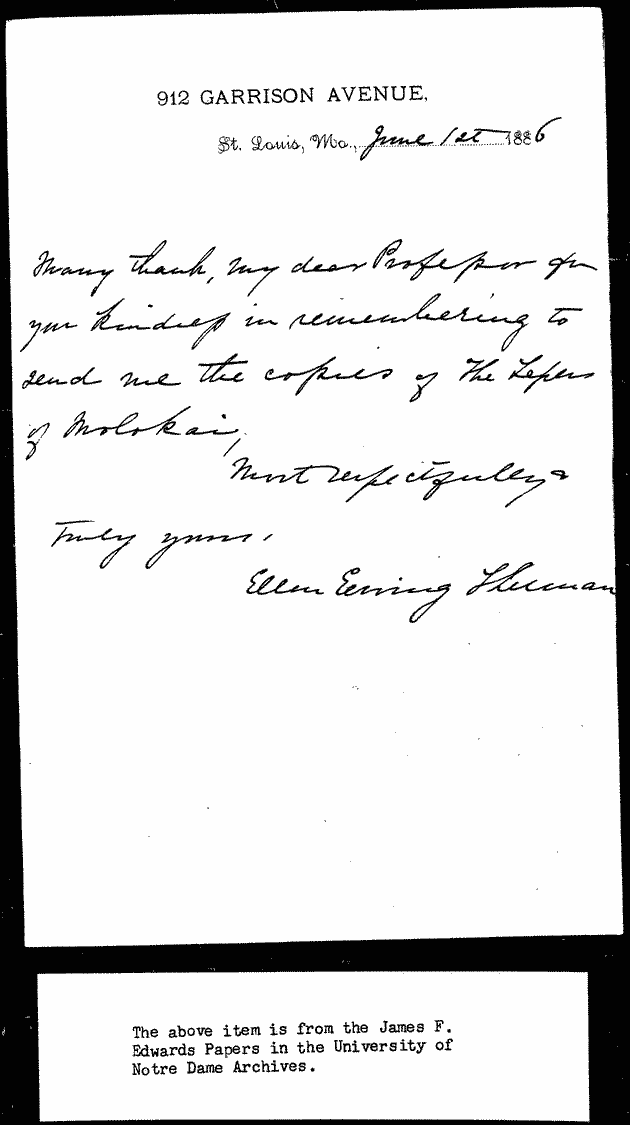 912 GARRISON AVENUE,
St. Louis, Mo., June 1st 1886
Many thank, my dear Professor for
your kindness in remembering to
send me the copies of The Lepers
of Molokai,
Most respectfully &
Truly yours,
Ellen Ewing Sherman
The above item is from the James F.
Edwards Papers in the University of
Notre Dame Archives.